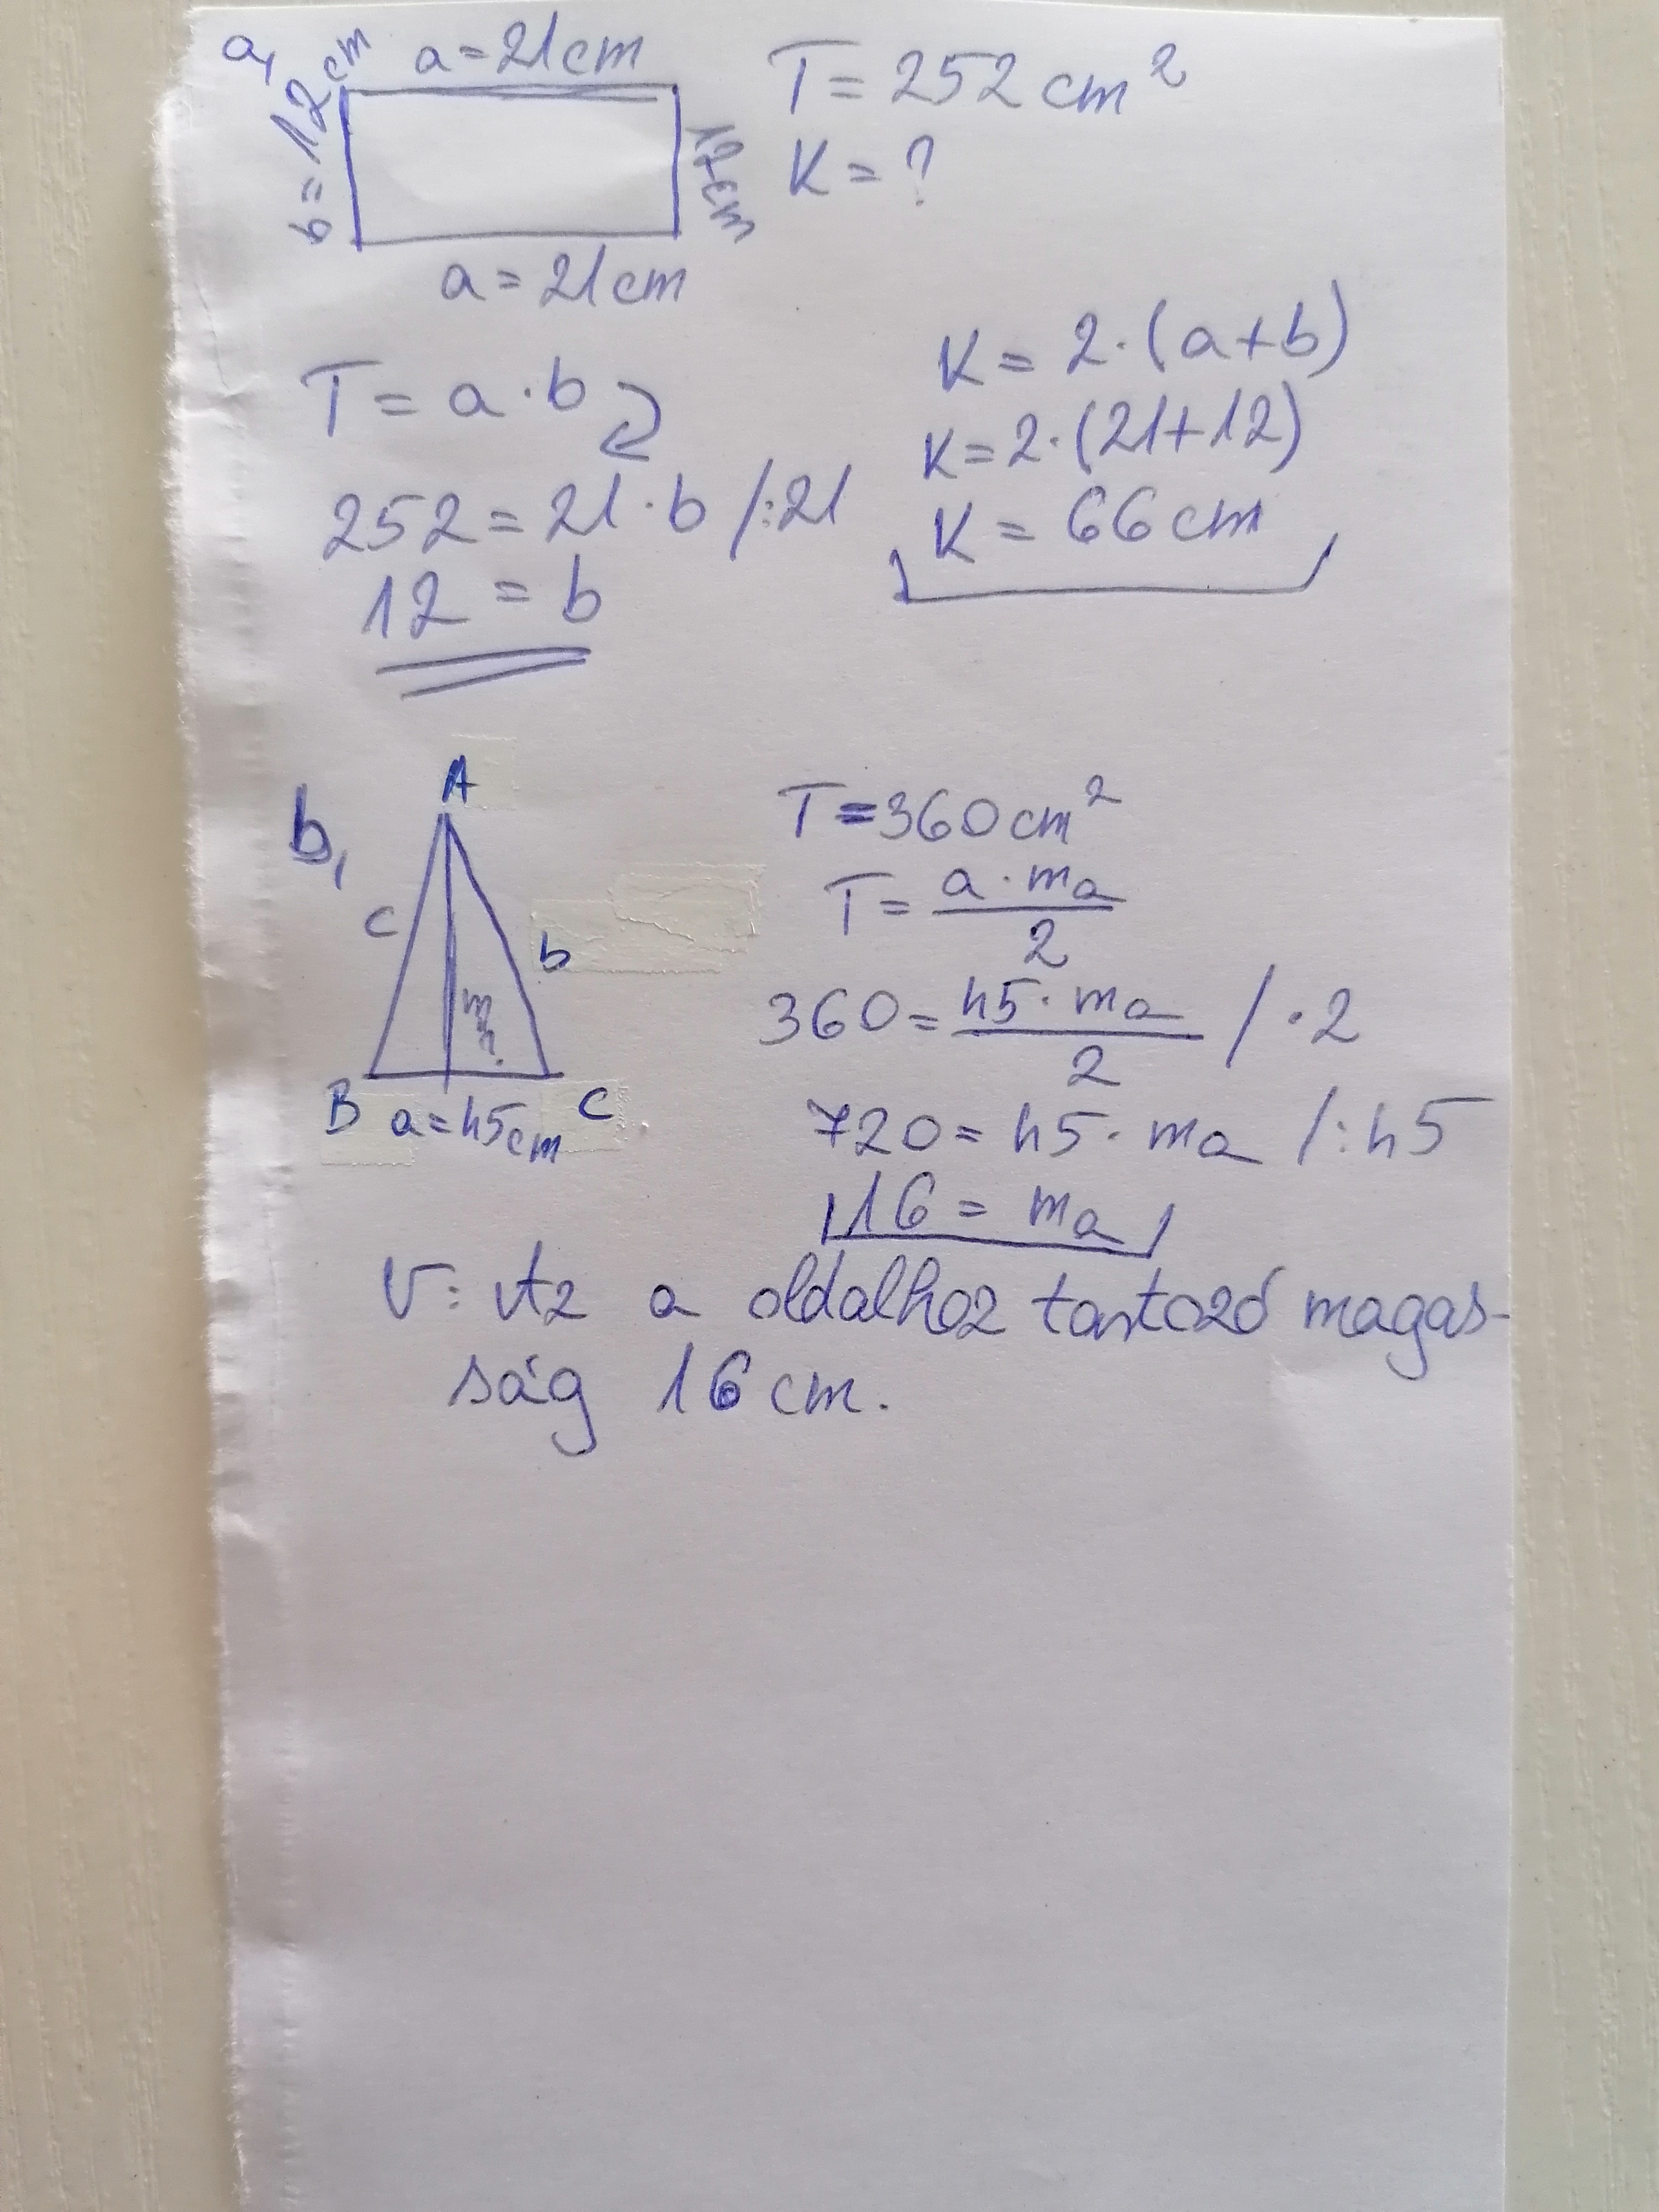 a,
a = 21 cm
b = 12 cm
12 cm
a = 21 cm
T = 252 cm²
K = ?
T = a · b
252 = 21 · b /:21
12 = b
K = 2 · (a + b)
K = 2 · (21 + 12)
K = 66 cm
b,
A
c
b
B
a = 45 cm
C
T = 360 cm²
T = a · ma / 2
360 = 45 · ma / 2 / · 2
720 = 45 · ma /:45
16 = ma
V: Az a oldalhoz tartozó magas-
ság 16 cm.